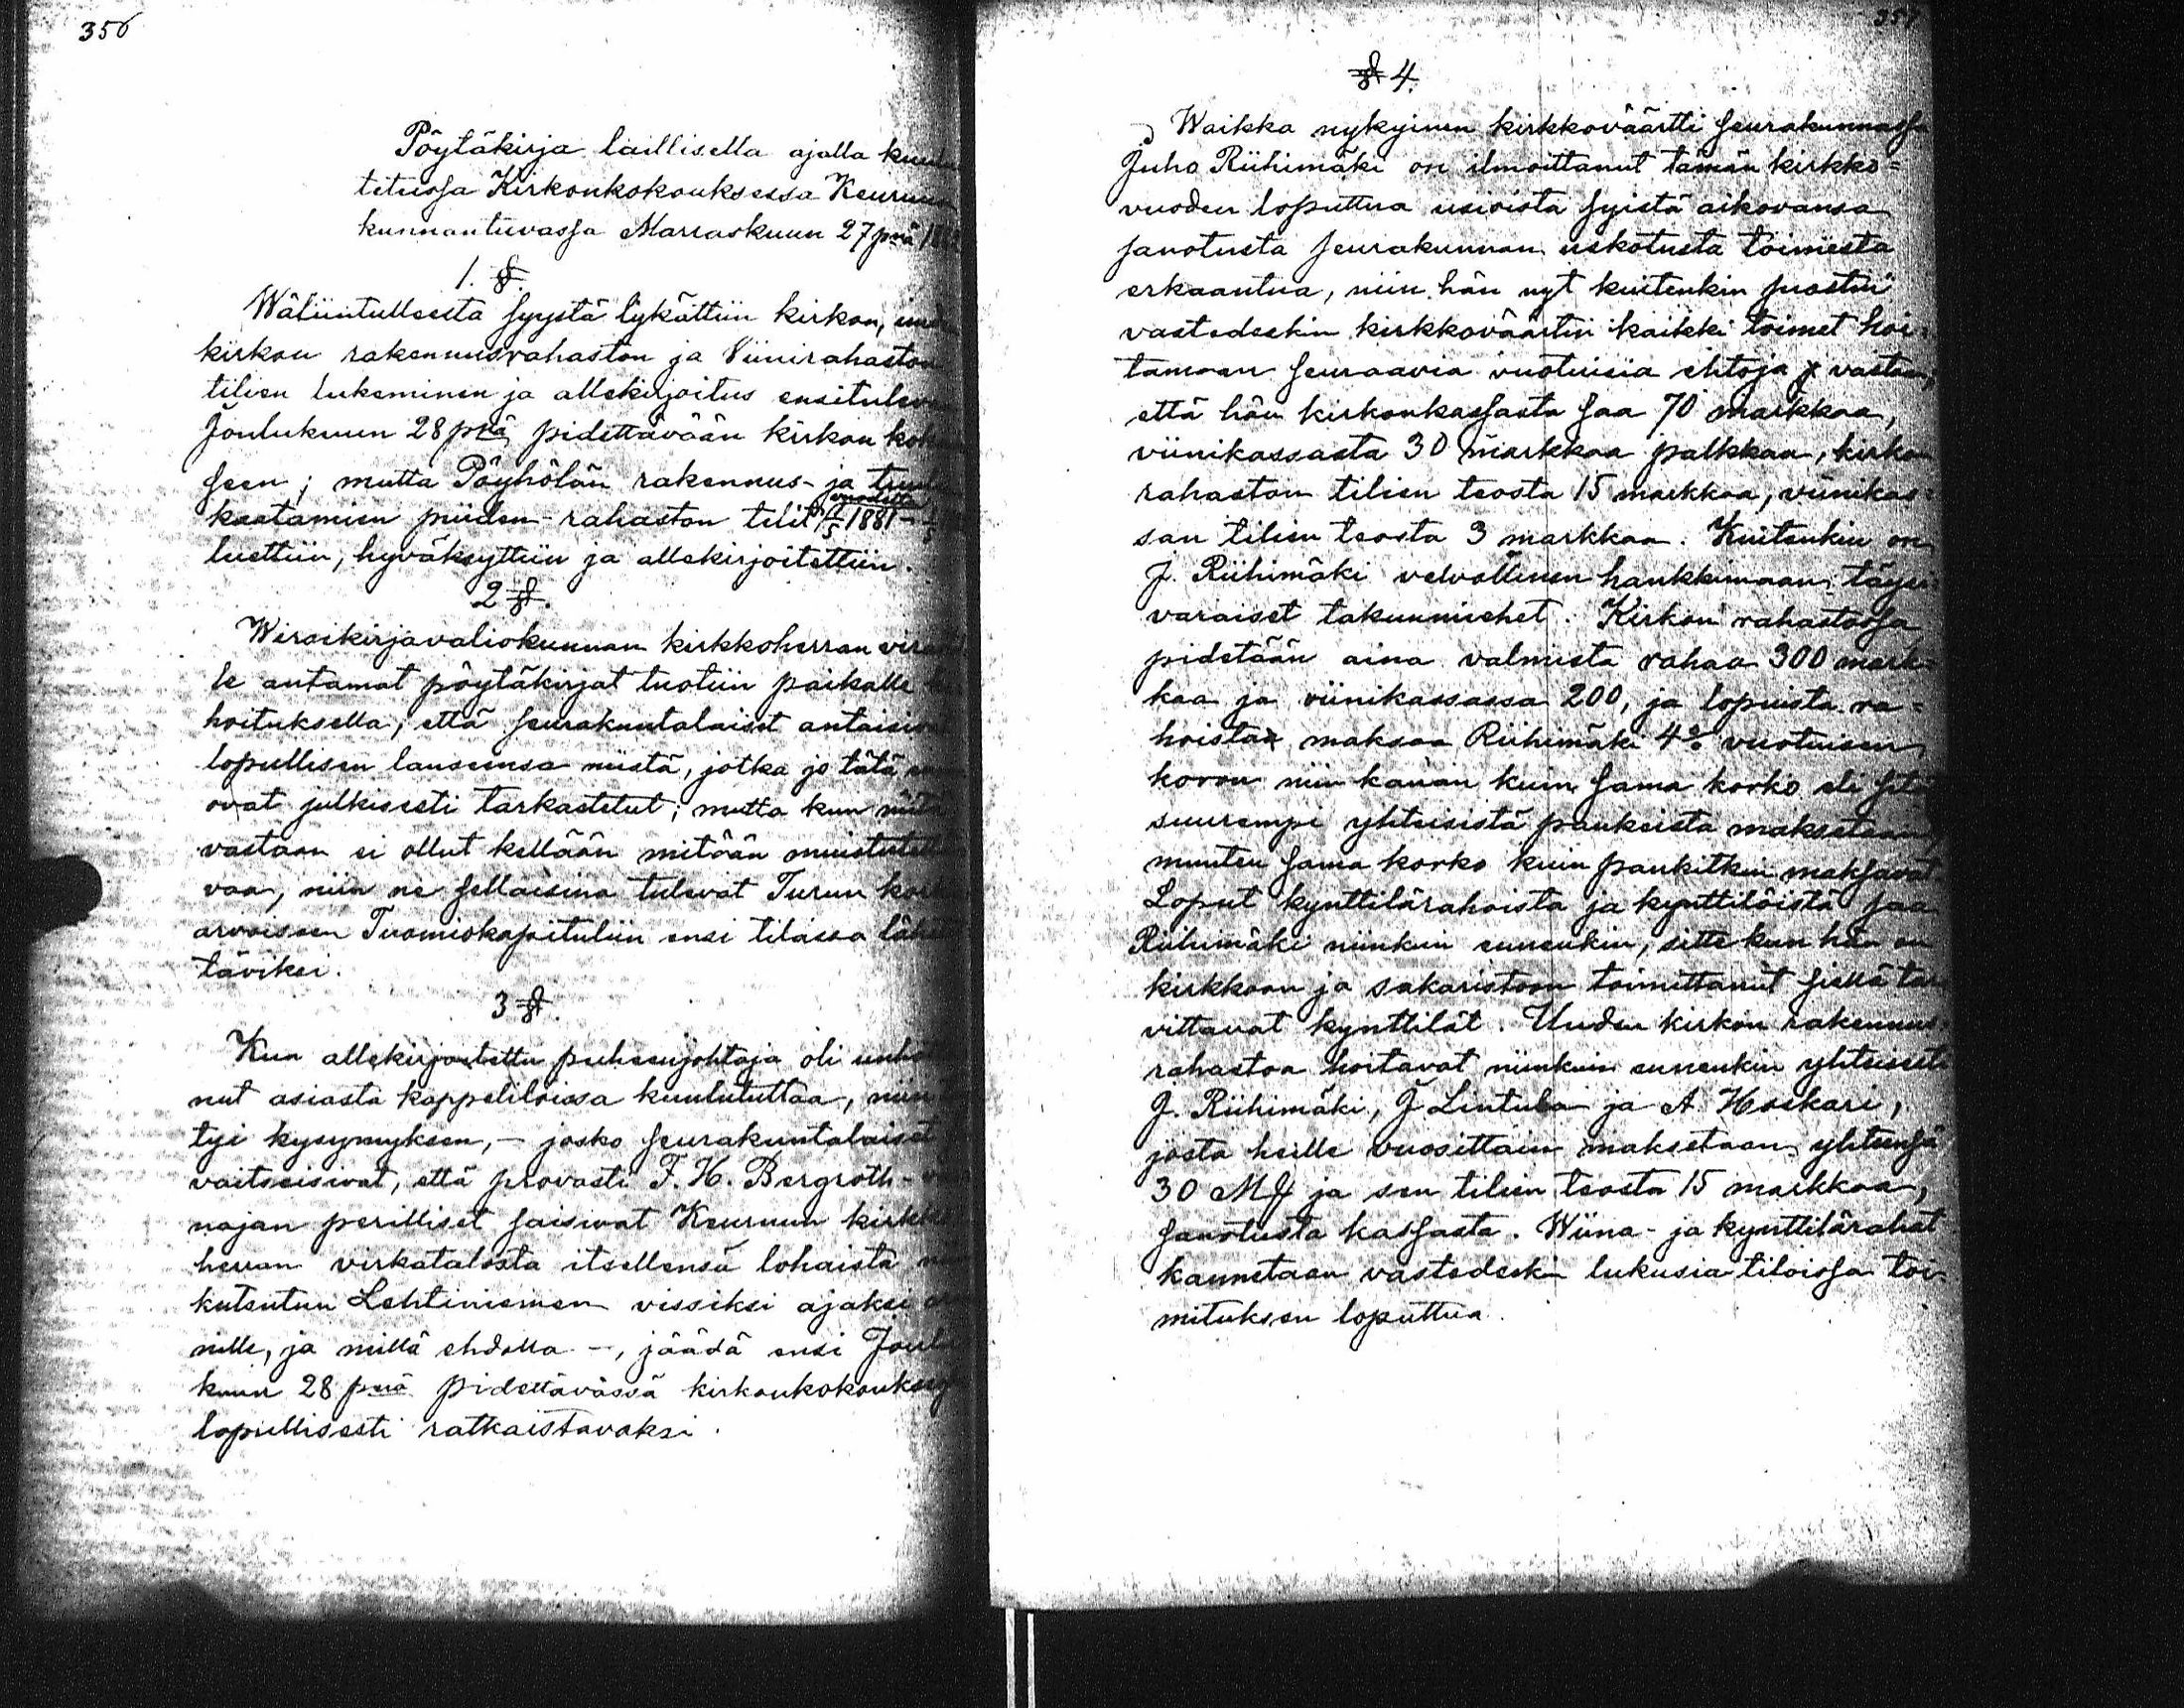 356
Pöytäkirja laillisella ajalla kuulu
tetussa Kirkonkokouksessa Keuruun
kunnantuvassa Marraskuun 27 pnä 18
1. §.
Wäliintulleesta syystä lykättiin kirkon, uuden
kirkon rakennusrahaston ja Viinirahaston
tilien lukeminen ja allekirjoitus ensitulevaan
Joulukuun 28 pnä pidettävään kirkon kok
seen; mutta Pöyhölän rakennus- ja tuulen
vuodelta
kaatamien puiden-rahaston tilit 1/5 1881-
luettiin, hyväksyttiin ja allekirjoitettiin.
2 §.
Wirsikirjavaliokunnan kirkkoherran viras
le antamat pöytäkirjat tuotiin paikalle
hoituksella, että seurakuntalaiset antaisivat
lopullisen lauseensa niistä, jotka jo tätä en
ovat julkisesti tarkastetut; mutta kun niitä
vastaan ei ollut kellään mitään muistutet
vaa, niin ne sellaisina tulevat Turun kor
arvoiseen Tuomiokapituliin ensi tilassa lähe
täviksi.
3 §.
Kun allekirjoitettu puheenjohtaja oli unho
nut asiasta kappeliloissa kuulututtaa, niin
tyi kysymyksen, - josko seurakuntalaiset
vaitseisivat, että provasti F. H. Bergroth-
najan perilliset saisivat Keuruun kirkko
herran virkatalosta itsellensä lohaista n
kutsutun Lehtiniemen vissiksi ajaksi
nille, ja millä ehdolla -, jäädä ensi Joulu
kuun 28 pnä pidettävässä kirkonkokouksessa
lopullisesti ratkaistavaksi.
357
§ 4.
Waikka nykyinen kirkkoväärtti seurakunnassa
Juho Riihimäki on ilmoittanut tämän kirkko=
vuoden loputtua useoista syistä aikovansa
sanotusta seurakunnan uskotusta toimesta
erkaantua, niin hän nyt kuitenkin suostui
vastedeskin kirkkoväärtin kaikki toimet hoi=
tamaan seuraavia vuotuisia ehtoja vastaan,
että hän kirkonkassasta saa 70 markkaa,
viinikassasta 30 markkaa palkkaa, kirkon
rahaston tilien teosta 15 markkaa, viinikas=
san tilien teosta 3 markkaa. Kuitenkin on
J. Riihimäki velvollinen hankkimaan täysi=
varaiset takuumiehet. Kirkon rahastossa
pidetään aina valmista rahaa 300 mark=
kaa ja viinikassassa 200, ja lopuista ra=
hoista maksaa Riihimäki 4% vuotuisen
koron niin kauan kuin sama korko eli sitä
suurempi yhteisistä pankeista maksetaan,
muuten sama korko kuin pankitkin maksavat.
Loput kynttilärahoista ja kynttilöistä saa
Riihimäki niinkuin ennenkin, sitte kun hän on
kirkkoon ja sakaristoon toimittanut siellä tar
vittavat kynttilät. Uuden kirkon rakennus=
rahastoa hoitavat niinkuin ennenkin yhteisesti
J. Riihimäki, J Lintula ja A. Hoskari,
josta heille vuosittain maksetaan yhteensä
30 Mk ja sen tilien teosta 15 markkaa,
sanotusta kassasta. Wiina- ja kynttilärahat
kannetaan vastedeskin lukusia tiloissa toi=
mituksen loputtua.